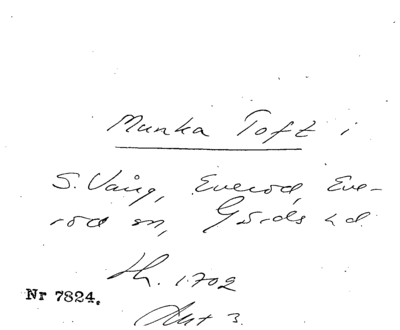 Munka Toft i
S. Vång, Everöd, Eve-
röd sn, Gärds hd.
Lk. 1702
Nr 7824.
Akt 3.